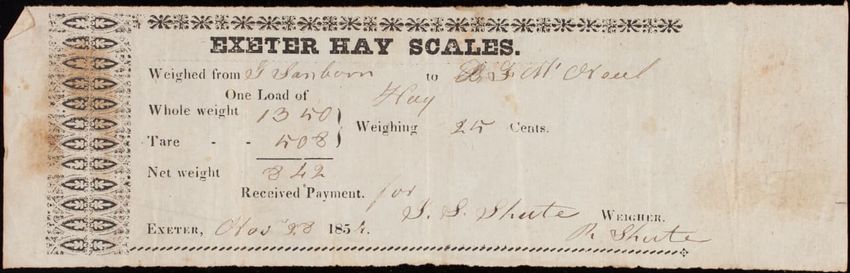 EXETER HAY SCALES.
Weighed from J Sanborn to
One Load of Hay
Whole weight 1350
Tare - - 508 } Weighing 25 Cents.
Net weight 842
Received Payment. for
S. S. Shute WEIGHER.
EXETER, Nov 28 185
R Shute